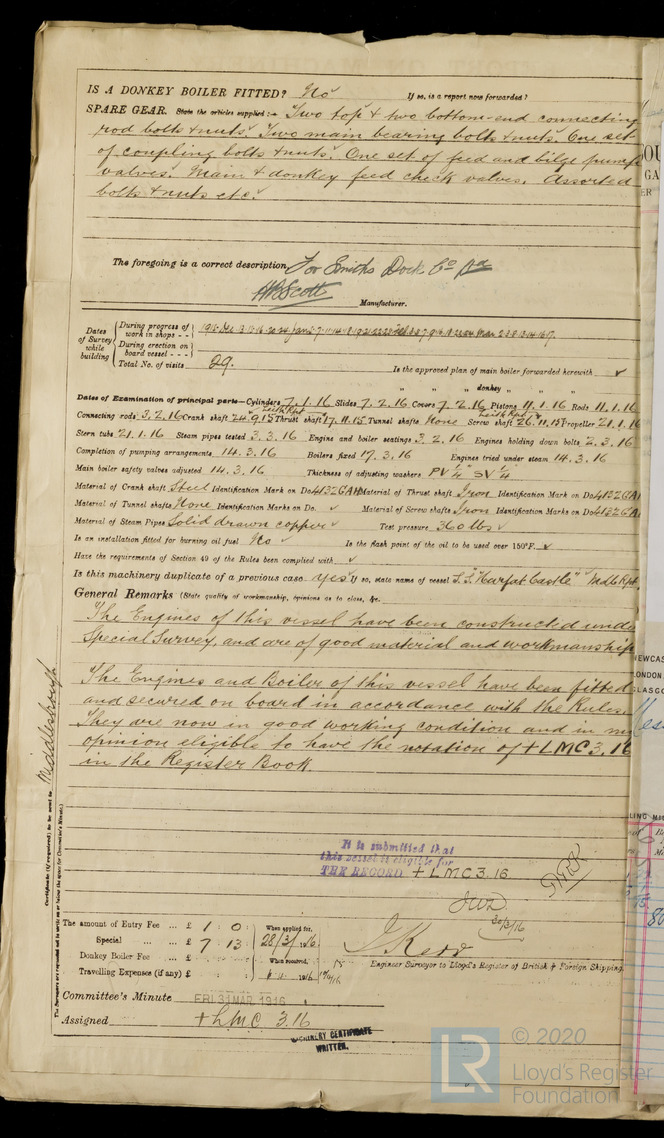 IS A DONKEY BOILER FITTED? No If so, is a report now forwarded?
SPARE GEAR. State the articles supplied:— Two top & two bottom-end connecting
rod bolts & nuts. Two main bearing bolts & nuts. One set
of coupling bolts & nuts. One set of feed and bilge pump
valves. Main & donkey feed check valves. Assorted
bolts & nuts etc.
The foregoing is a correct description, For Smiths Dock Co Ltd
Scott Manufacturer.
Dates of Survey while building
During progress of work in shops - -
During erection on board vessel - - -
Total No. of visits 29.
Is the approved plan of main boiler forwarded herewith ✓
" " " donkey " " "
Dates of Examination of principal parts—Cylinders 7.1.16 Slides 7.2.16 Covers 7.2.16 Pistons 11.1.16 Rods 11.1.16
Leith Rpt Leith Rpt
Connecting rods 3.2.16 Crank shaft 24.9.15 Thrust shaft 17.11.15 Tunnel shafts None Screw shaft 26.11.15 Propeller 21.1.16
Stern tube 21.1.16 Steam pipes tested 3.3.16 Engine and boiler seatings 3.2.16 Engines holding down bolts 2.3.16
Completion of pumping arrangements 14.3.16 Boilers fixed 17.3.16 Engines tried under steam 14.3.16
Main boiler safety valves adjusted 14.3.16 Thickness of adjusting washers PV 1/4 SV 1/4
Material of Crank shaft Steel Identification Mark on Do. 4132 Material of Thrust shaft Iron Identification Mark on Do. 4132
Material of Tunnel shafts None Identification Marks on Do. ✓ Material of Screw shafts Iron Identification Marks on Do. 4132
Material of Steam Pipes Solid drawn copper ✓ Test pressure 360 lbs ✓
Is an installation fitted for burning oil fuel No ✓ Is the flash point of the oil to be used over 150°F. ✓
Have the requirements of Section 49 of the Rules been complied with ✓
Is this machinery duplicate of a previous case yes If so, state name of vessel S.S. "Castle" Mdb Rpt
General Remarks (State quality of workmanship, opinions as to class, &c.
The Engines of this vessel have been constructed
Special Survey, and are of good material and workmanship
The Engines and Boiler of this vessel have been fitted
and secured on board in accordance with the Rules.
They are now in good working condition and in my
opinion eligible to have the notation of + LMC 3.16
in the Register Book.
Middlesbrough
Certificate (if required) to be sent to
It is submitted that
this vessel is eligible for
THE RECORD + LMC 3.16
30/3/16
The amount of Entry Fee ... £ 1 : 0 : When applied for,
Special ... ... £ 7 : 13 : 28/3/1916
Donkey Boiler Fee ... £ : : When received,
Travelling Expenses (if any) £ : :
Engineer Surveyor to Lloyd's Register of British & Foreign Shipping.
Committee's Minute FRI. 31 MAR 1916
Assigned + LMC 3.16
MACHINERY CERTIFICATE
WRITTEN.
LR
© 2020
Lloyd's Register
Foundation